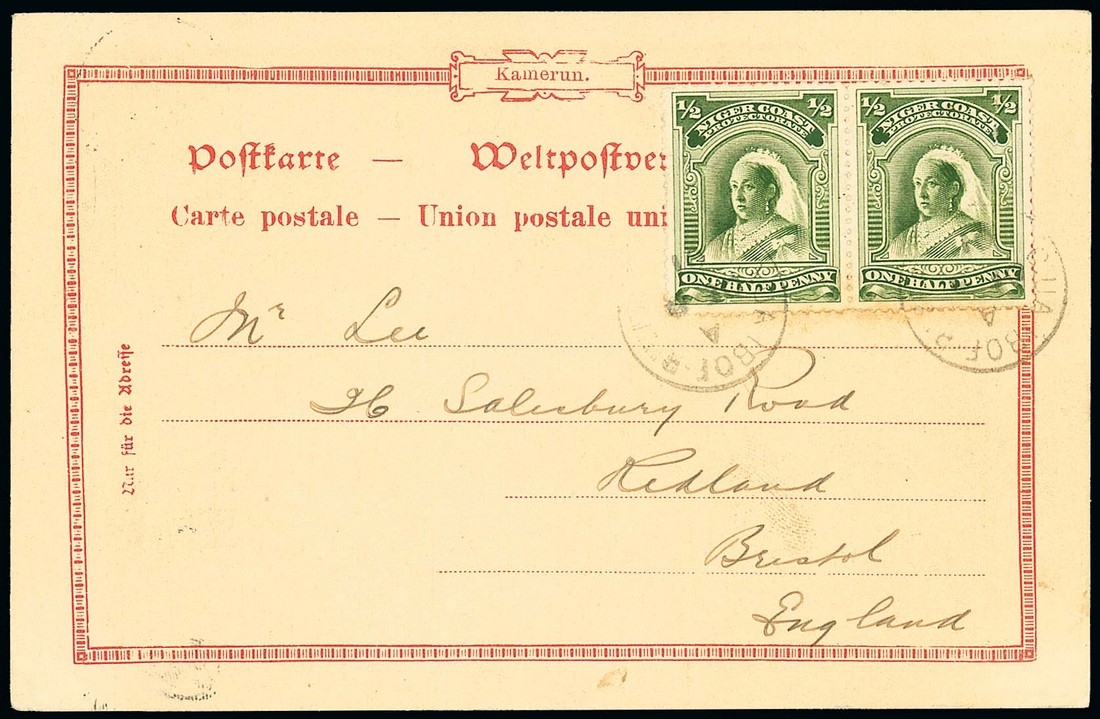 Kamerun.
Postkarte — Weltpostver
Carte postale — Union postale uni
1/2 1/2
NIGER COAST
PROTECTORATE
ONE HALF PENNY
1/2 1/2
NIGER COAST
PROTECTORATE
ONE HALF PENNY
A
A
Nur für die Adresse
Mr Lee
36 Salesbury Road
Redland
Bristol
England